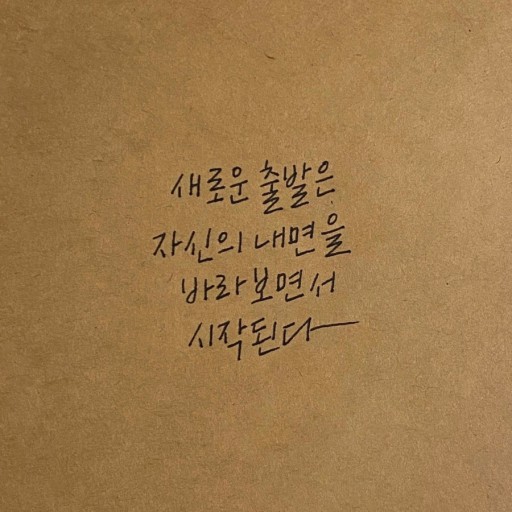 새로운 출발은
자신의 내면을
바라보면서
시작된다